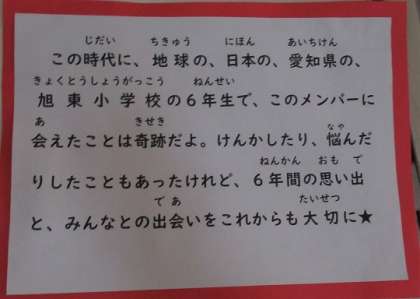 じだい ちきゅう にほん あいちけん
この時代に、地球の、日本の、愛知県の、
きょくとうしょうがっこう ねんせい
旭東小学校の6年生で、このメンバーに
あ きせき なや
会えたことは奇跡だよ。けんかしたり、悩んだ
ねんかん おも で
りしたこともあったけれど、6年間の思い出
であ たいせつ
と、みんなとの出会いをこれからも大切に★